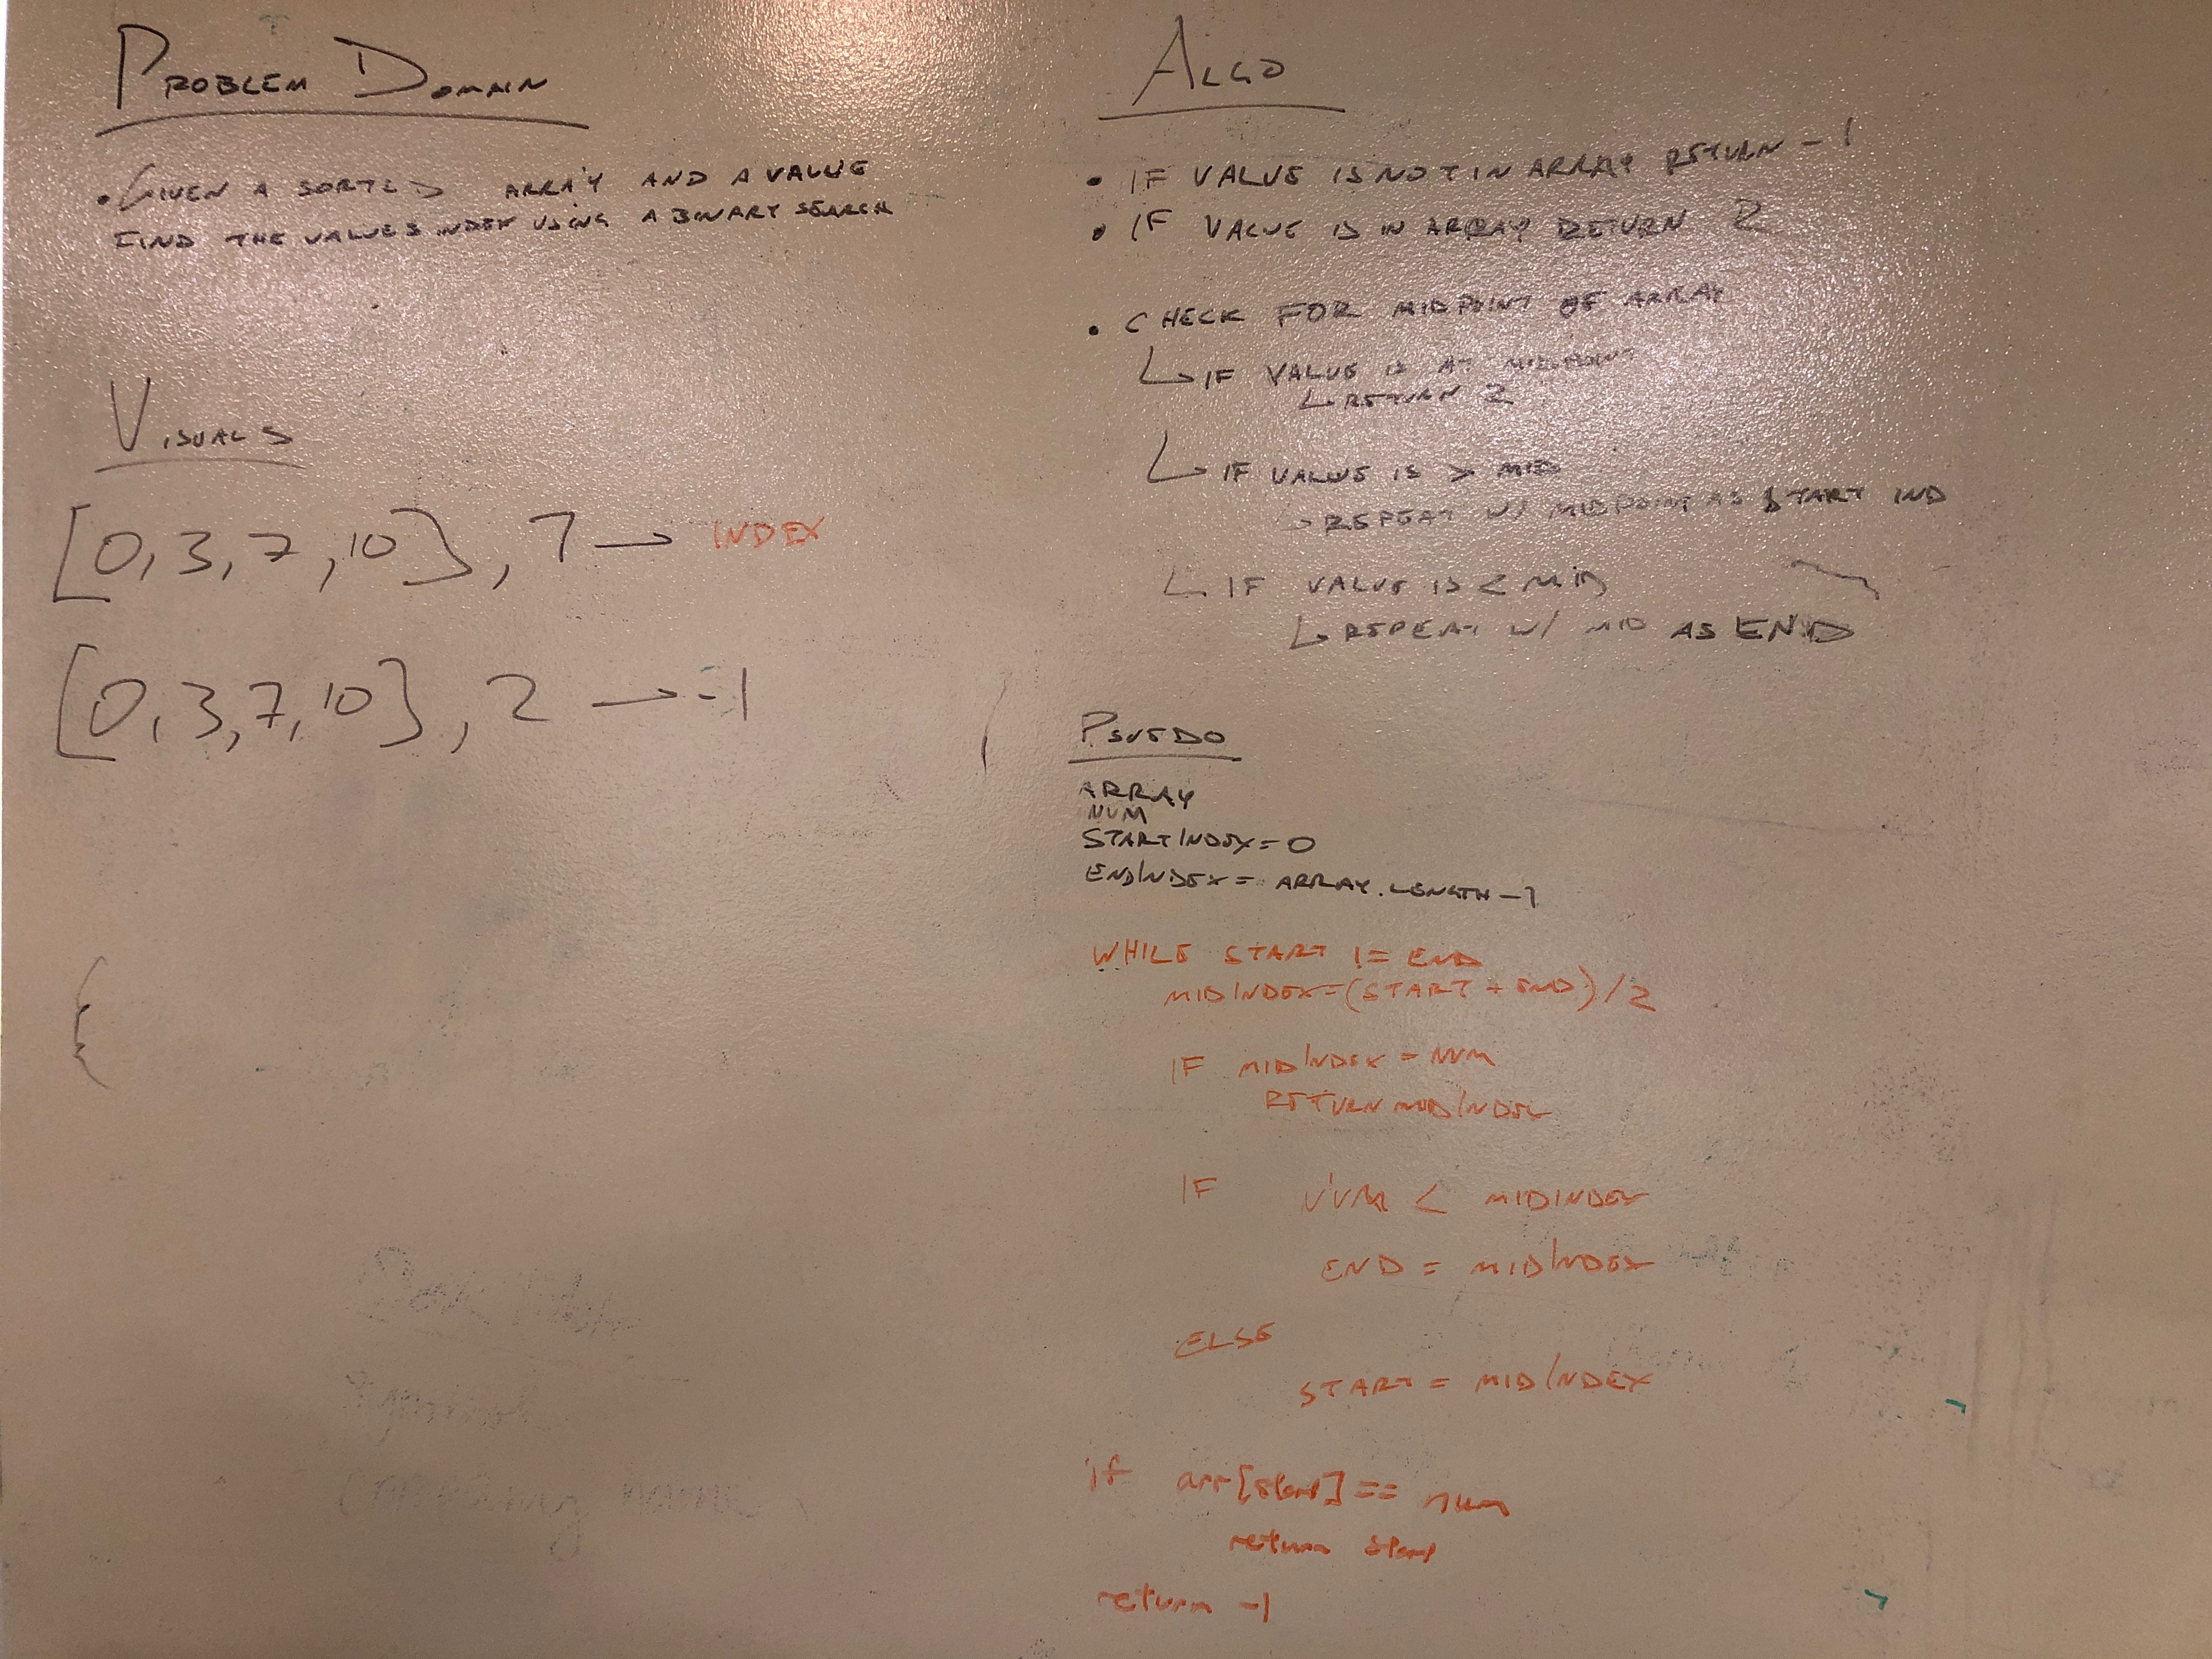 PROBLEM DOMAIN
• GIVEN A SORTED ARRAY AND A VALUE
FIND THE VALUES INDEX USING A BINARY SEARCH
VISUALS
[0, 3, 7, 10], 7 → INDEX
[0, 3, 7, 10], 2 → -1
ALGO
• IF VALUE IS NOT IN ARRAY RETURN -1
• IF VALUE IS IN ARRAY RETURN 2
• CHECK FOR MIDPOINT OF ARRAY
↳ IF VALUE IS AT MIDPOINT
↳ RETURN 2
↳ IF VALUE IS > MID
↳ REPEAT W/ MIDPOINT AS START IND
↳ IF VALUE IS < MID
↳ REPEAT W/ MID AS END
PSUEDO
ARRAY
NUM
STARTINDEX = 0
ENDINDEX = ARRAY.LENGTH - 1
WHILE START != END
MIDINDEX = (START + END) / 2
IF MIDINDEX = NUM
RETURN MIDINDEX
IF NUM < MIDINDEX
END = MIDINDEX
ELSE
START = MIDINDEX
if arr[start] == num
return start
return -1
company name